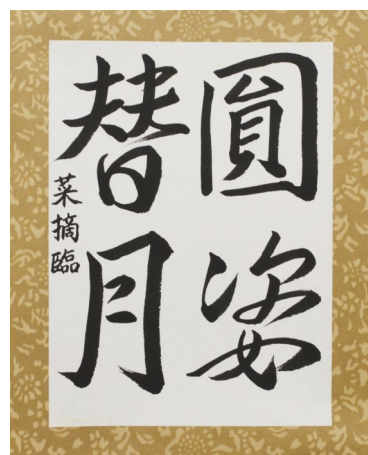 圓姿
替月
菜摘臨